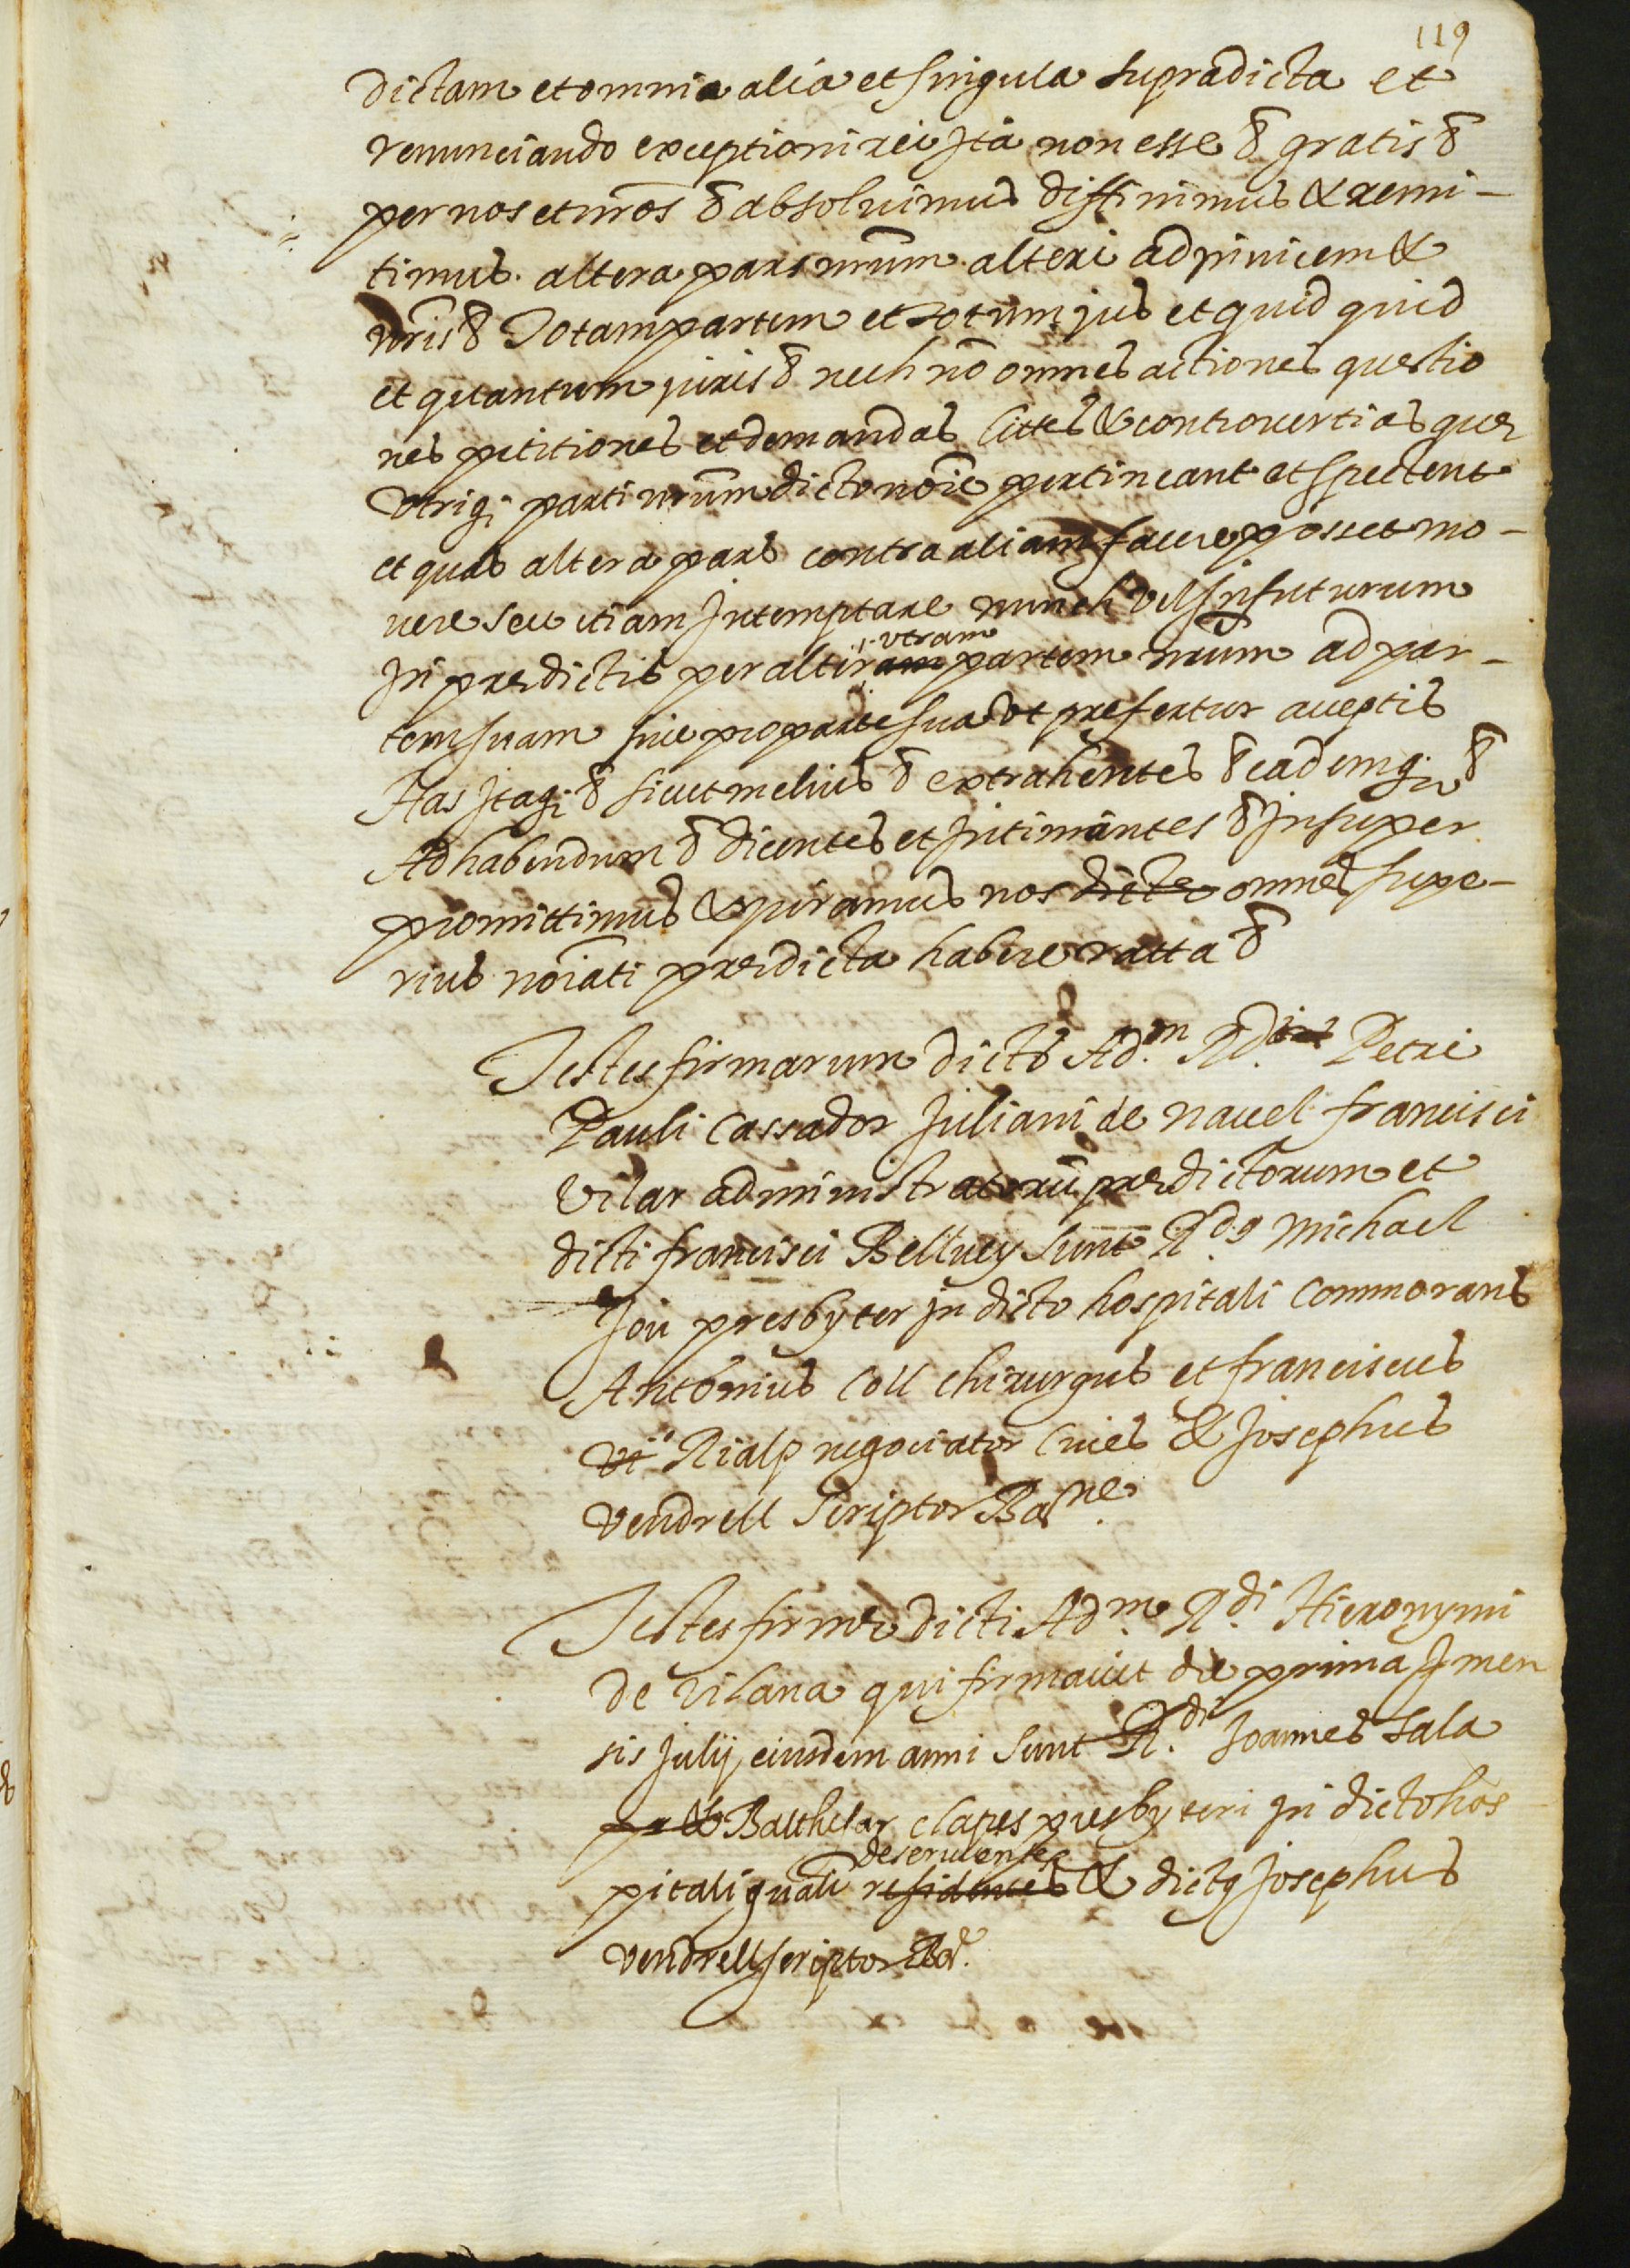 119
dictam et omnia alia et singula supradicta et
renunciando exceptioni rei ita non esse & gratis &
per nos et nr̃os & absoluimus diffinimus & remi-
timus altera pars nr̃um alteri ad invicem &
nr̃is & Totam partem et totum jus et quid quid
et quantum juris & nech nõ omnes actiones questio
nes petitiones et demandas littes & controvertias que
utriq; parti nr̃um dicto noĩe pertineant et spectent
et quas altera pars contra aliam facere posset mo-
vere seu etiam Intemptare nunch vel In futurum
In predictis per alter utram partem nr̃um ad par-
tem suam sive pro parte sua ut prefertur aceptis
Has Itaq; & sicut melius & extrahentes & eademq; &
Ad habendum & dicentes et Intimantes & Insuper
promittimus & juramus nos dicte omnes supe-
rius noĩati predicta habere ratta &
Testes firmarum dictõ Ad.m Rd. Petri
Pauli Cassador Juliani de Navel francisci
Vilar administratorũ predictorum et
dicti francisci Bellvey sunt Rd9 Michael
Jou presbyter in dicto hospitali Commorans
Antonius Coll chirurgus et franciscus
Vi Rialp negociator Cives & Josephus
Vendrell scriptor Barne.
Testes firme dicti Ad.m R.di Hieronymi
de Vilana qui firmavit die prima J men
sis Julij eiusdem anni sunt R.di Joannes Sala
& Balthesar clapes presbyteri in dicto hos
pitali quali residentes deservientes & dict9 Josephus
Vendrell scriptor Bar.